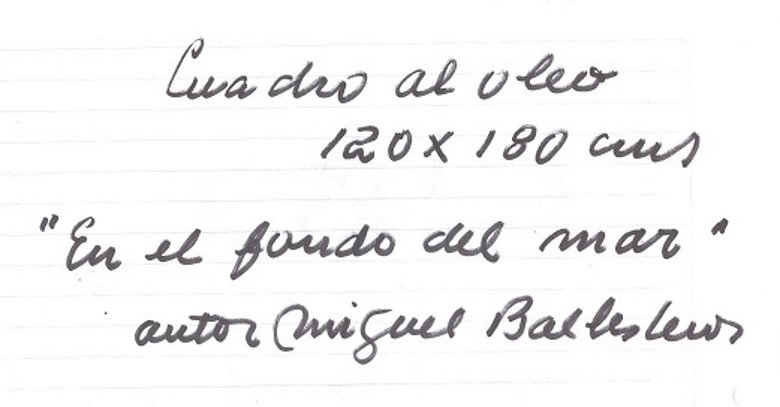 Cuadro al oleo
120 x 180 cms
"En el fondo del mar"
autor Miguel Ballesteros